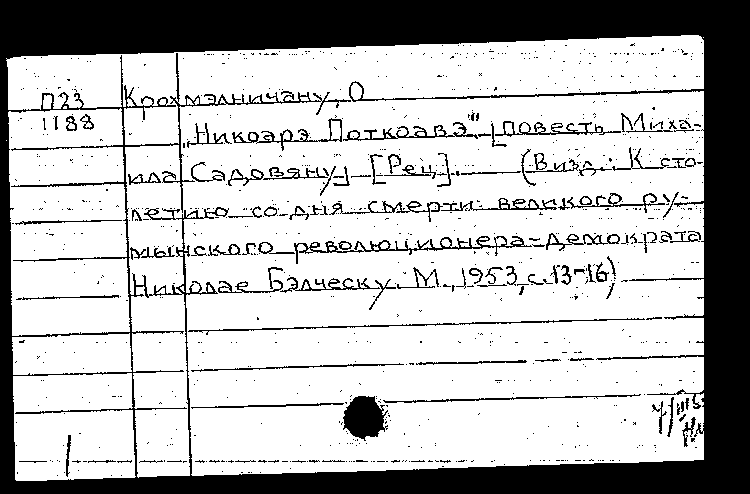 П23 Крохмэлничану, О
1188
„Никоарэ Поткоавэ" [повесть Миха-
ила Садовяну] [Рец]. (В изд.: К сто-
летию со дня смерти великого ру-
мынского революционера-демократа
Николае Бэлческу. М., 1953, с. 13-16)